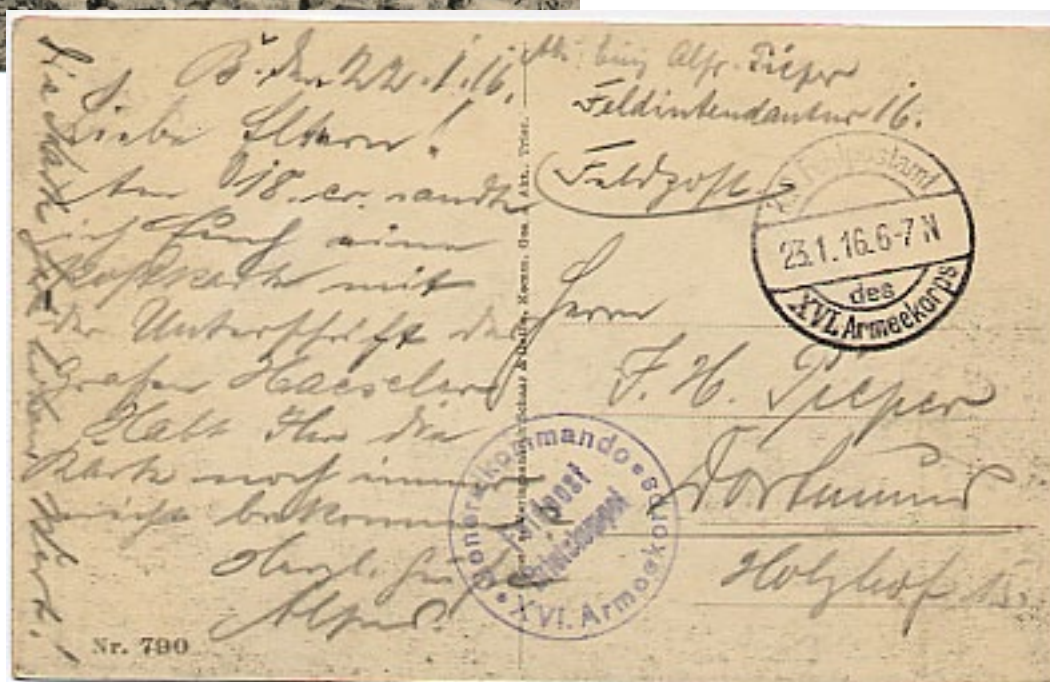 B. den 22.1.16.
Liebe Eltern!
Am 18. cr. sandte
ich Euch eine
Postkarte mit
der Unterschrift des
Grafen Haeseler.
Habt Ihr die
Karte noch immer
nicht bekommen?
Herzl. Grüße
Alfred.
Die Karte hat
Wert!
Nr. 790
Abs. Alfr. Pieper
Feldintendantur 16.
Feldpost
Feldpostamt
23.1.16.6-7 N
des
XVI. Armeekorps
Herrn
F. H. Pieper
Dortmund
Holzhof 15.
Generalkommando
Feldpost
Briefstempel
XVI. Armeekorps
Trier.